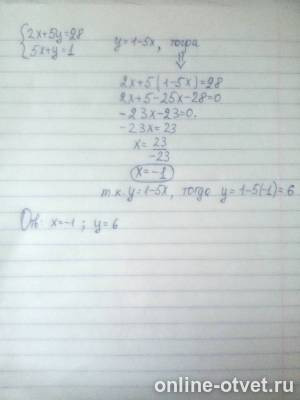 {2x+5y=28
{5x+y=1
y=1-5x, тогда
⇓
2x+5(1-5x)=28
2x+5-25x-28=0
-23x-23=0.
-23x=23
x=23/-23
x=-1
т.к. y=1-5x, тогда y=1-5(-1)=6
Отв x=-1; y=6
online-otvet.ru